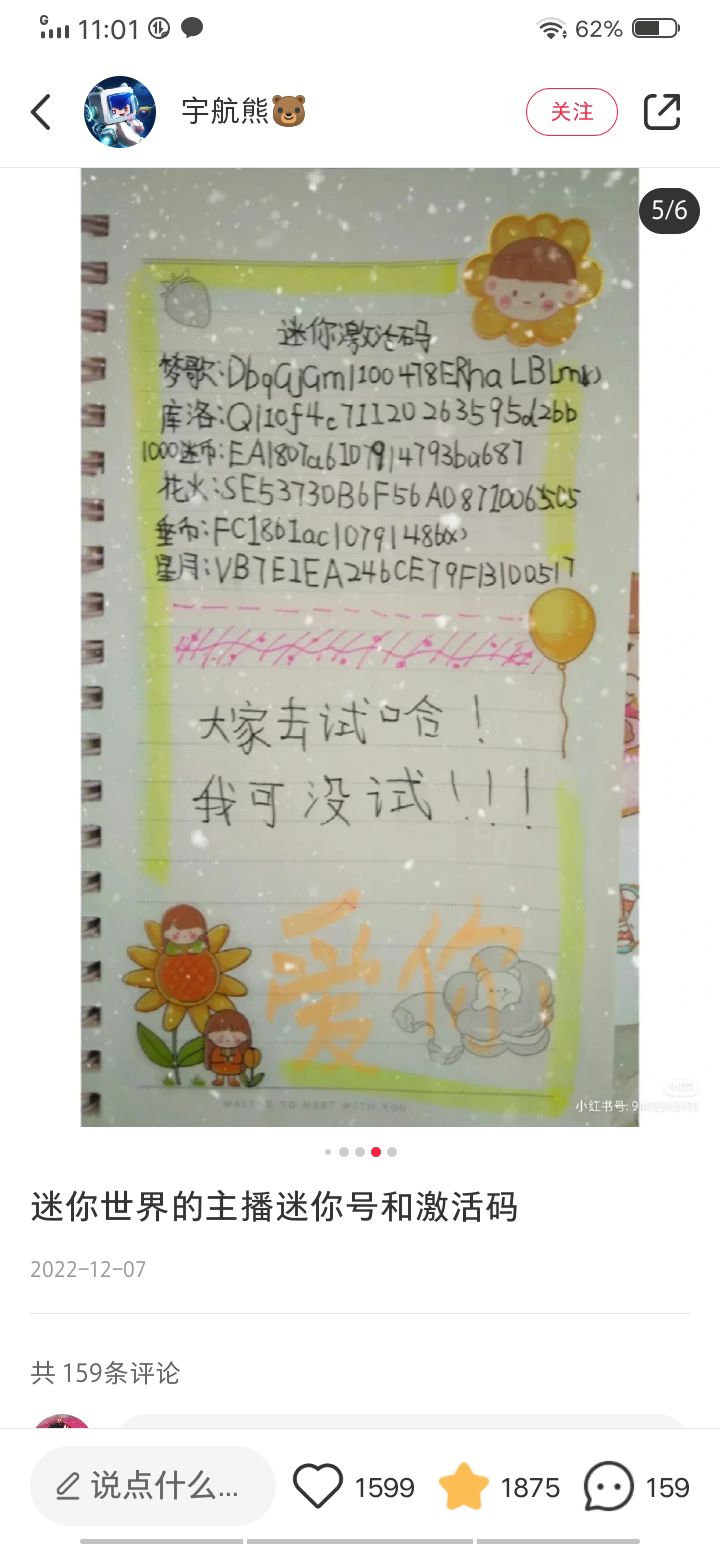 11:01
62%
宇航熊🐻
关注
5/6
迷你激活码
梦歌:DbqGjGm1100478ERhaLBLmk)
库洛:Q110f4c71120263595d2bb
1000迷币:EA1807a6107914793ba687
花火:SE53730B6F56A0871006505
垂币:FC1861ac1079148600)
星月:VB7E1EA246CE79F13100517
大家去试哈!
我可没试!!!
爱你
WAITING TO MEET WITH YOU
小红书
小红书号:
迷你世界的主播迷你号和激活码
2022-12-07
共 159条评论
说点什么...
1599
1875
159